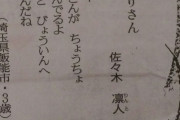 りさん
佐々木 凛人
さんが ちょうちょ
んでるよ
と びょういんへ
んだね
（埼玉県飯能市・3歳）